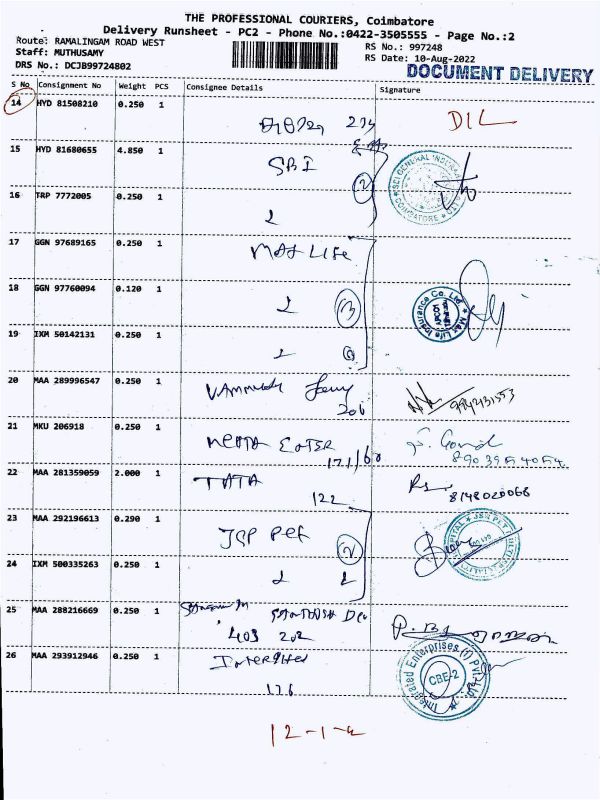 THE PROFESSIONAL COURIERS, Coimbatore
Delivery Runsheet - PC2 - Phone No.:0422-3505555 - Page No.:2
Route: RAMALINGAM ROAD WEST
RS No.: 997248
Staff: MUTHUSAMY
RS Date: 10-Aug-2022
DRS No.: DCJB99724802
DOCUMENT DELIVERY
S No Consignment No Weight PCS Consignee Details Signature
14 HYD 81508210 0.250 1
DIL
15 HYD 81680655 4.850 1
SBI
2
16 TRP 7772005 0.250 1
17 GGN 97689165 0.250 1
MAX LIFE
18 GGN 97760094 0.120 1
3
Max Life Insurance Co. Ltd
19 IXM 50142131 0.250 1
20 MAA 289996547 0.250 1
206
21 MKU 206918 0.250 1
MEHTA ENTER
171/60
8903954054
22 MAA 281359059 2.000 1
TATA
122
8148020068
23 MAA 292196613 0.290 1
JSP
2
24 IXM 500335263 0.250 1
25 MAA 288216669 0.250 1
403 202
26 MAA 293912946 0.250 1
176
Integrated Enterprises (I) Pvt. Ltd
CBE-2